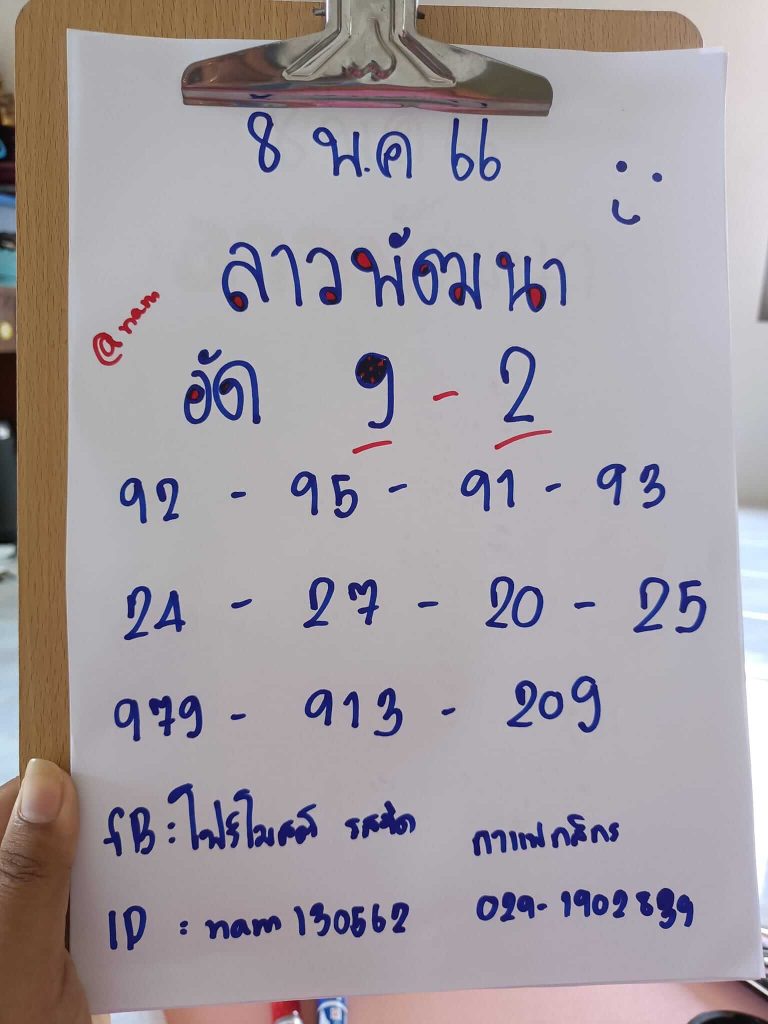 8 พ.ค 66
ลาวพัฒนา
@nam
อัด 9 - 2
92 - 95 - 91 - 93
24 - 27 - 20 - 25
979 - 913 - 209
fB : โฟร์โมสต์ รสจืด
กาแฟกสิกร
ID : nam130562
029-1902839